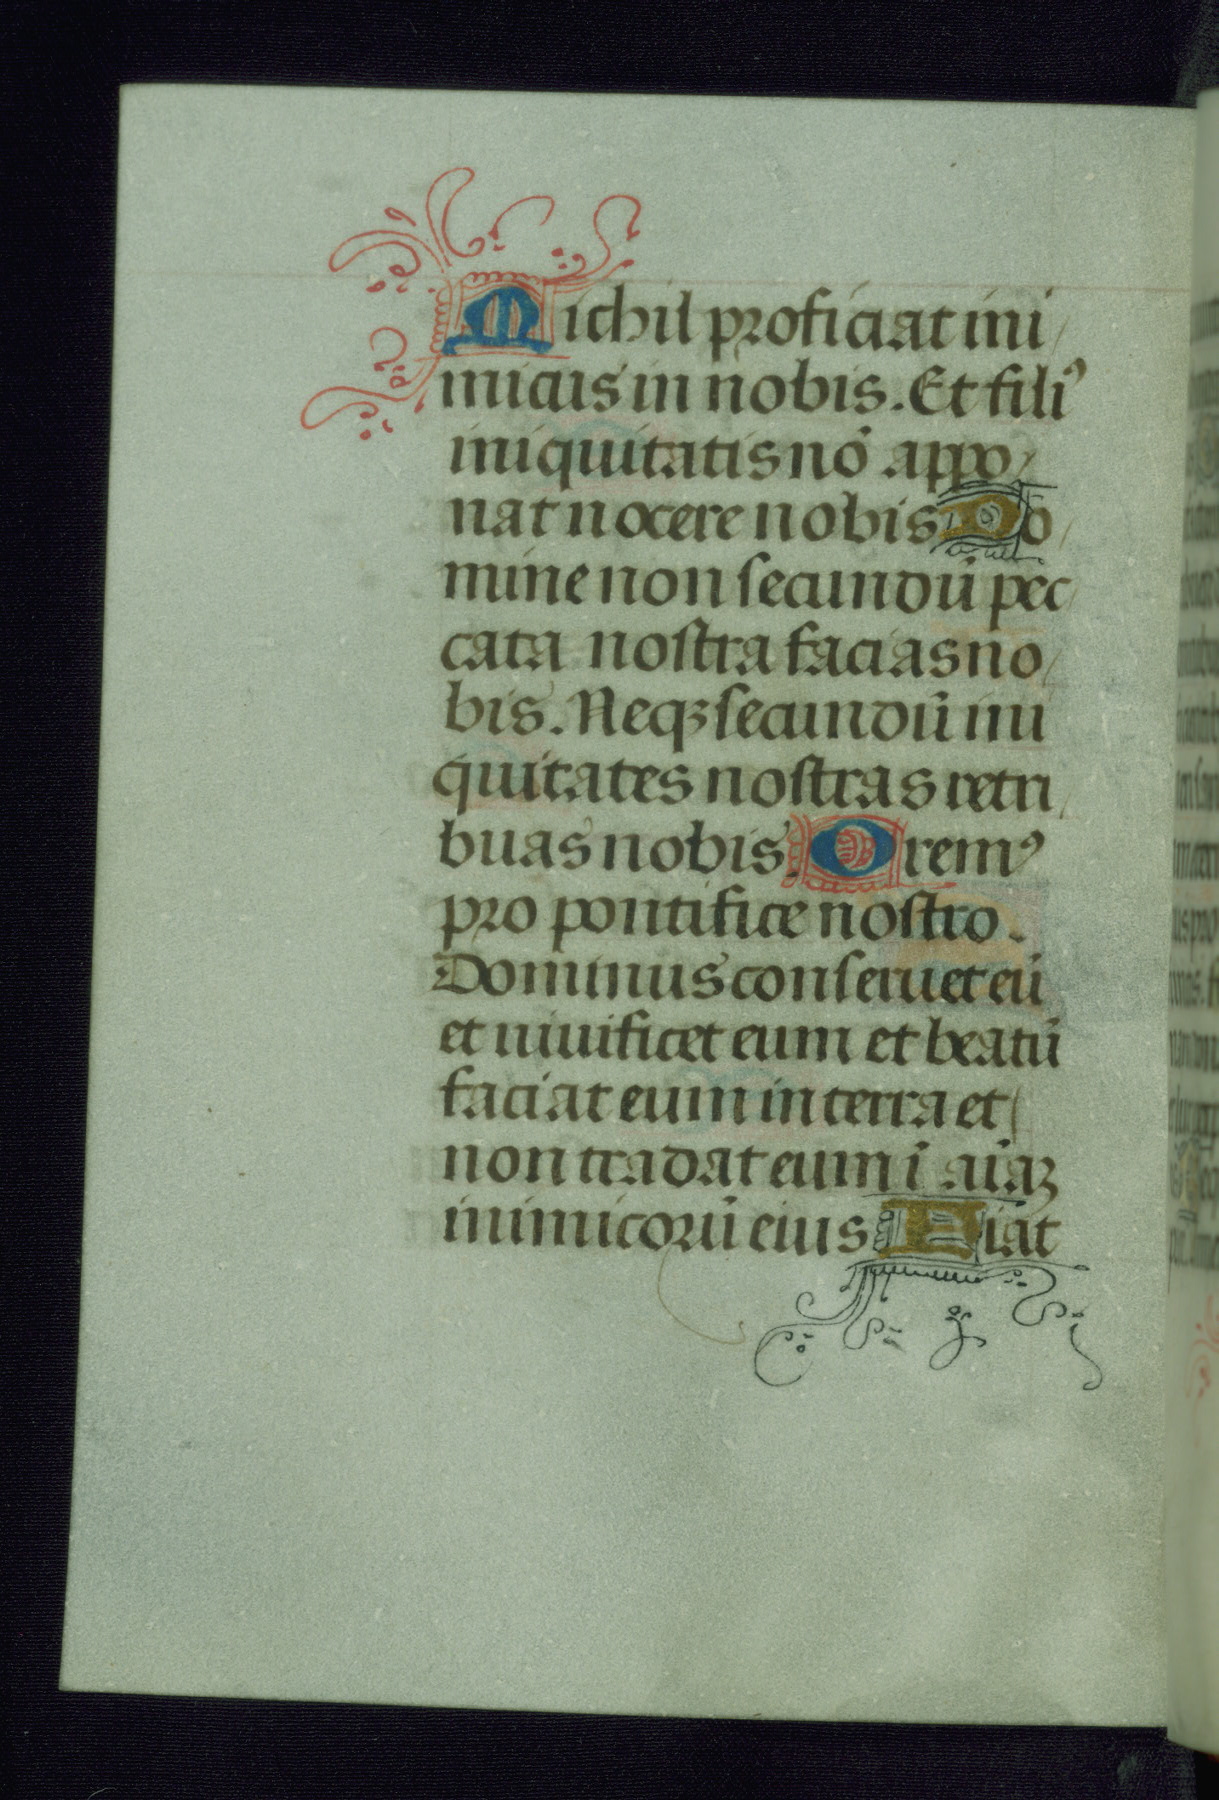 Michil proficiat ini
micus in nobis. Et fili⁹
iniquitatis nō appo
nat nocere nobis Do
mine non secundū pec
cata nostra facias no
bis. Neqꝫ secundū ini
quitates nostras retri
buas nobis. Orem⁹
pro pontifice nostro.
Dominus conseruet eū
et uiuificet eum et beatū
faciat eum in terra et
non tradat eum ī aīaꝫ
inimicorū eius Fiat